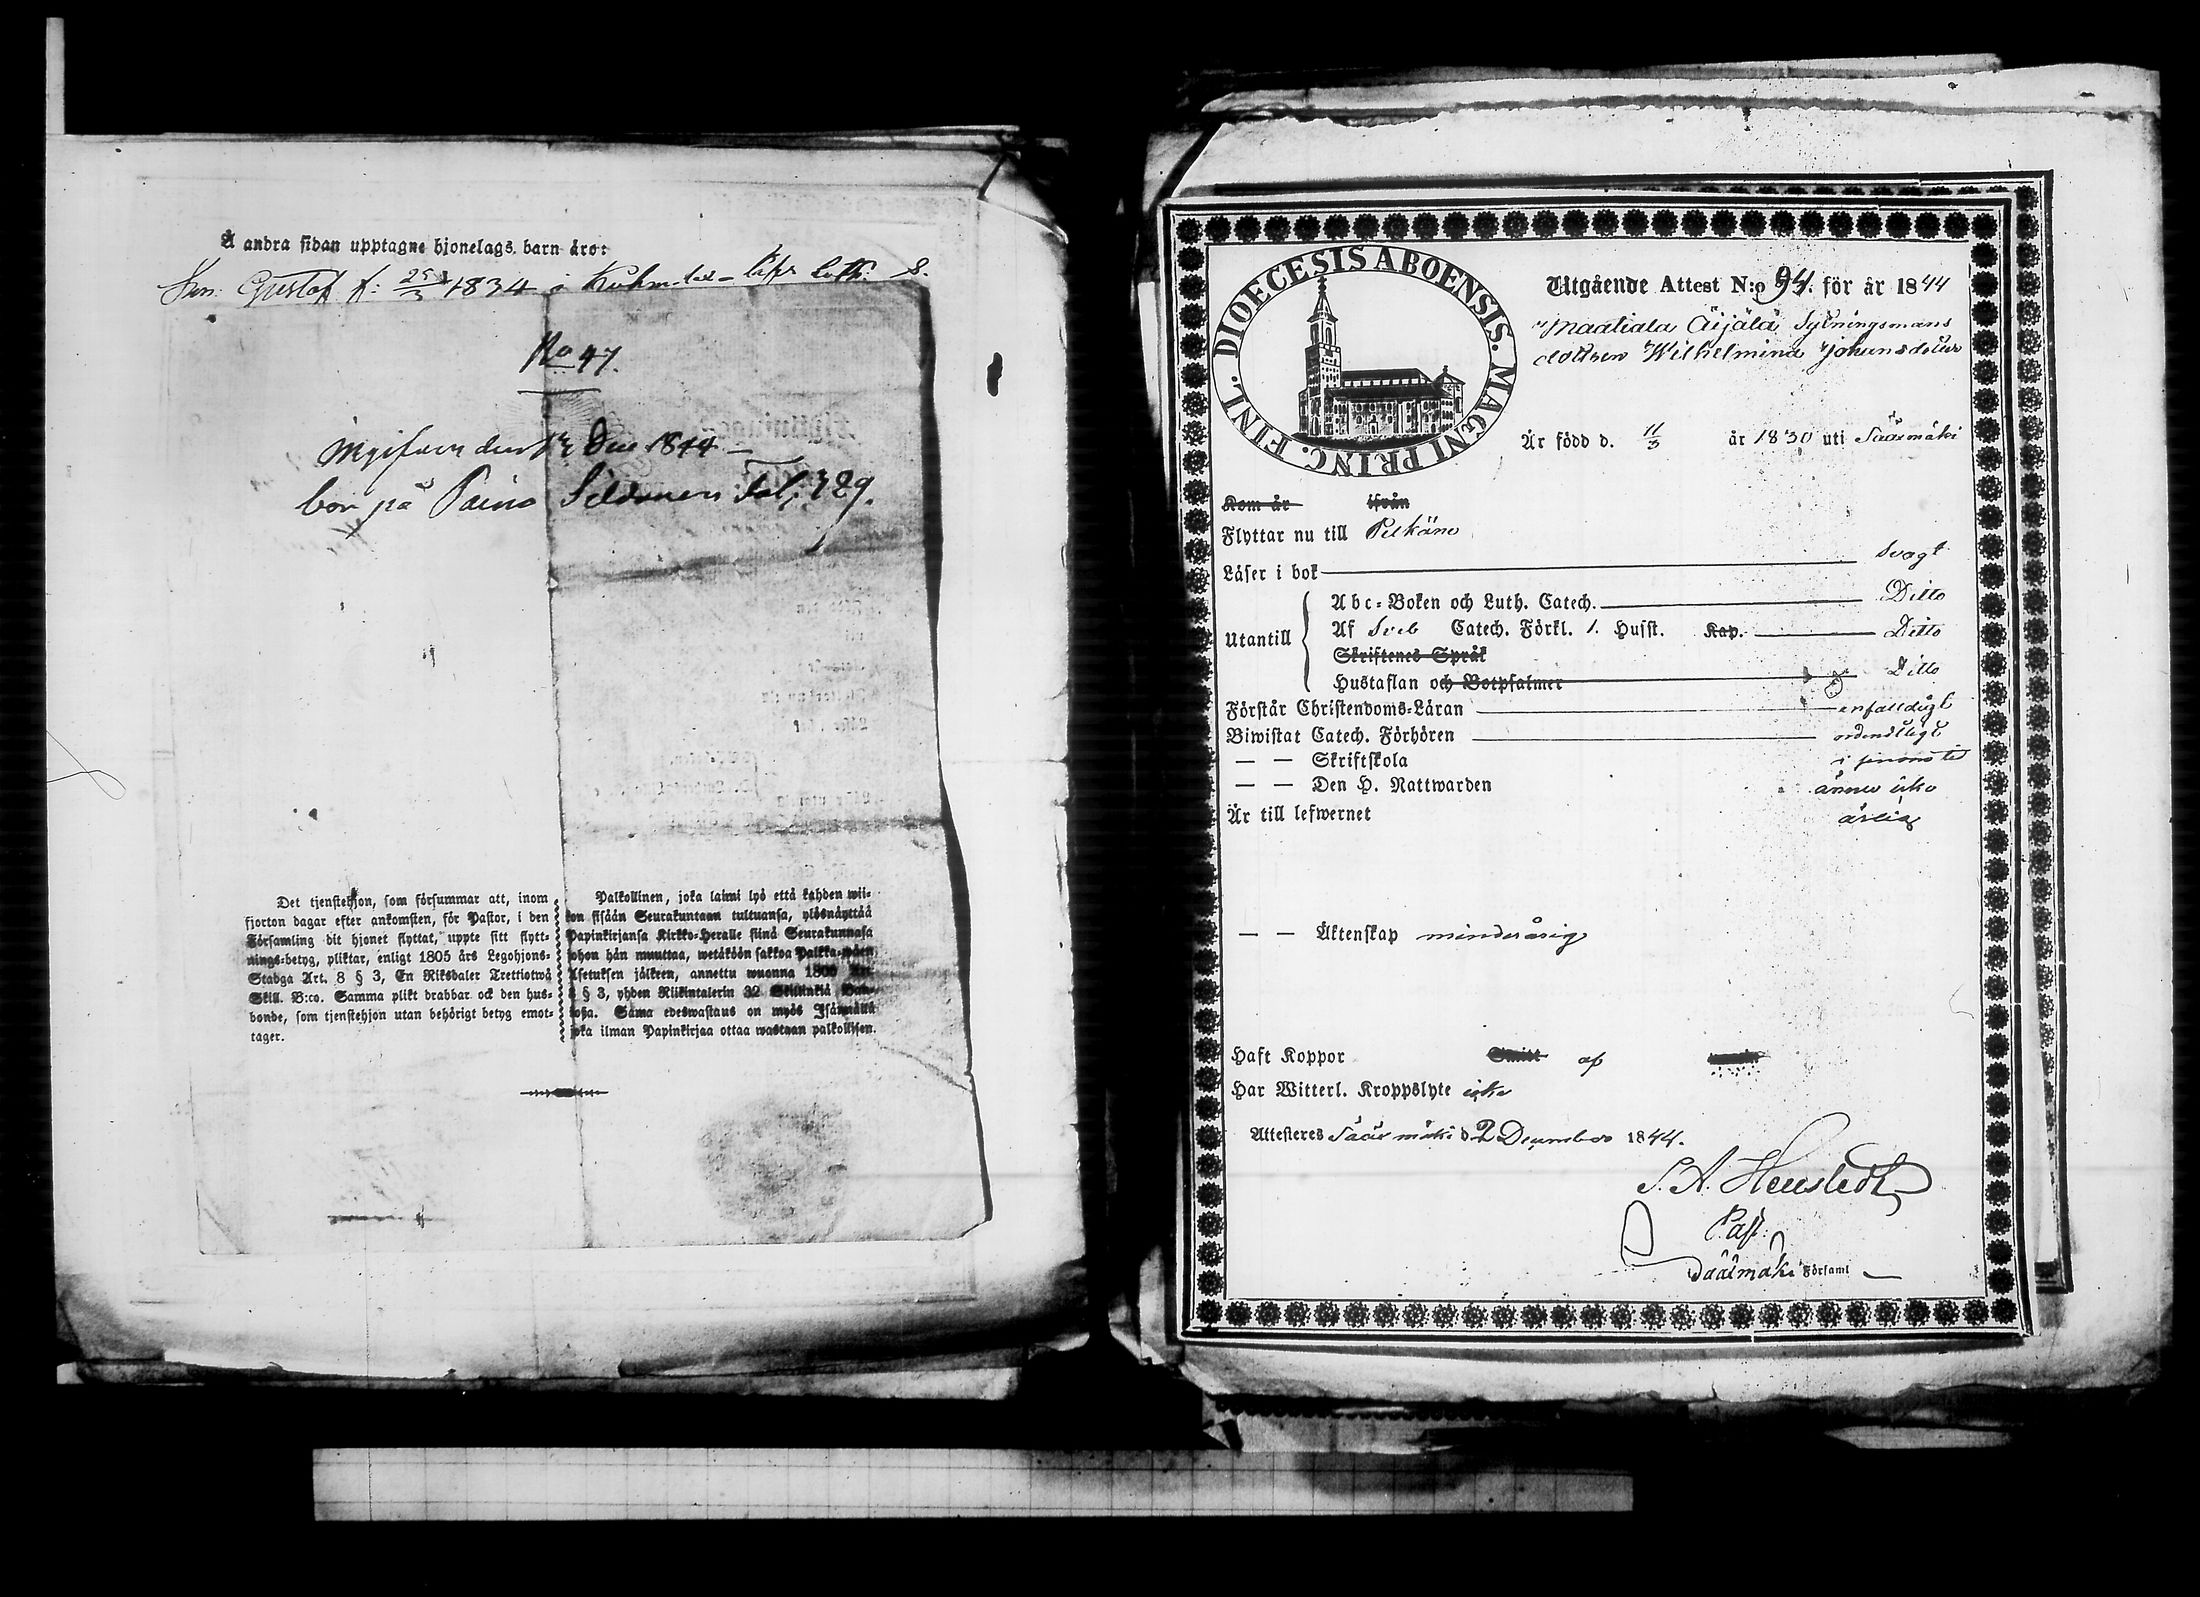 Å andra sidan upptagne hjonelags barn äro:
Son: Gustaf f: 25/3 1834 i Kuhm
No 47.
den Dec 1844
bor på Fol: 729.
Det tjenstehjon, som försummar att, inom
fjorton dagar efter ankomsten, för Pastor, i den
Församling dit hjonet flyttat, uppte sitt flytt-
nings-betyg, pliktar, enligt 1805 års Legohjons-
Stadga Art. 8 § 3, En Riksdaler Trettiotwå
Skill. B:co. Samma plikt drabbar ock den hus-
bonde, som tjenstehjon utan behörigt betyg emot-
tager.
Palkollinen, joka laimi lyö että kahden wii-
kon sisään Seurakuntaan tultuansa, ylösnäyttää
Papinkirjansa Kirkko-Heralle siinä Seurakunnasa
johon hän muuttaa, wetäköön sakkoa Palkka-wäen
Asetuksen jälkeen, annettu wuonna 1805 Art.
8 § 3, yhden Riikintalerin 32 Skillinkiä Ban-
kosa. Sama edeswastaus on myös Isännällä
joka ilman Papinkirjaa ottaa wastaan palkollisen.
DIOECESIS ABOENSIS. MAGNI PRINC. FINL.
Utgående Attest N:o 94. för år 1844
Maatiala Äijälä Sytningsmans
dottren Wilhelmina Johansdotter
Är född d. 11/3 år 1830 uti Sääxmäki
Kom år ifrån
Flyttar nu till Pelkäne
Läser i bok svagt
Utantill
Abc-Boken och Luth. Catech. Ditto
Af Sveb Catech. Förkl. 1. Husst. Kap. Ditto
Skriftenes Språk
Hustaflan och Botpsalmer Ditto
Förstår Christendoms-Läran enfalldigt
Biwistat Catech. Förhören ordendtligt
— — Skriftskola
— — Den H. Nattwarden ännu icke
Är till lefwernet ärlig
— — Äktenskap minderårig
Haft Koppor af
Har Witterl. Kroppslyte icke
Attesteres Sääxmäki d 2 December 1844.
Past.
Sääxmäki Församl